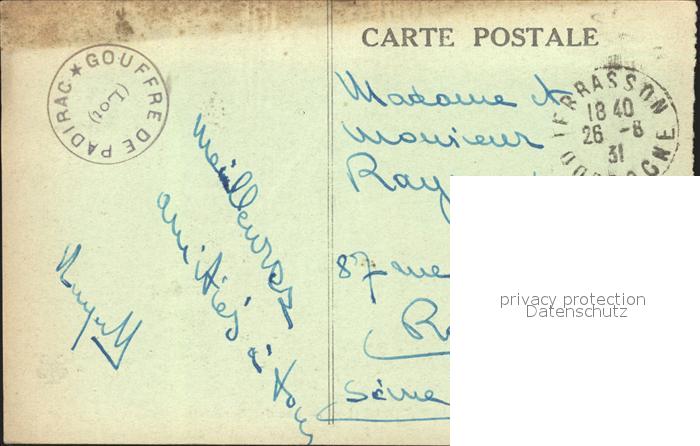 CARTE POSTALE
★ GOUFFRE DE PADIRAC
(LOT)
TERRASSON
18 40
26 -8
31
DORDOGNE
Madame &
Monsieur
Ray
87 rue
Seine
Meilleures
amitiés
à tous
privacy protection
Datenschutz